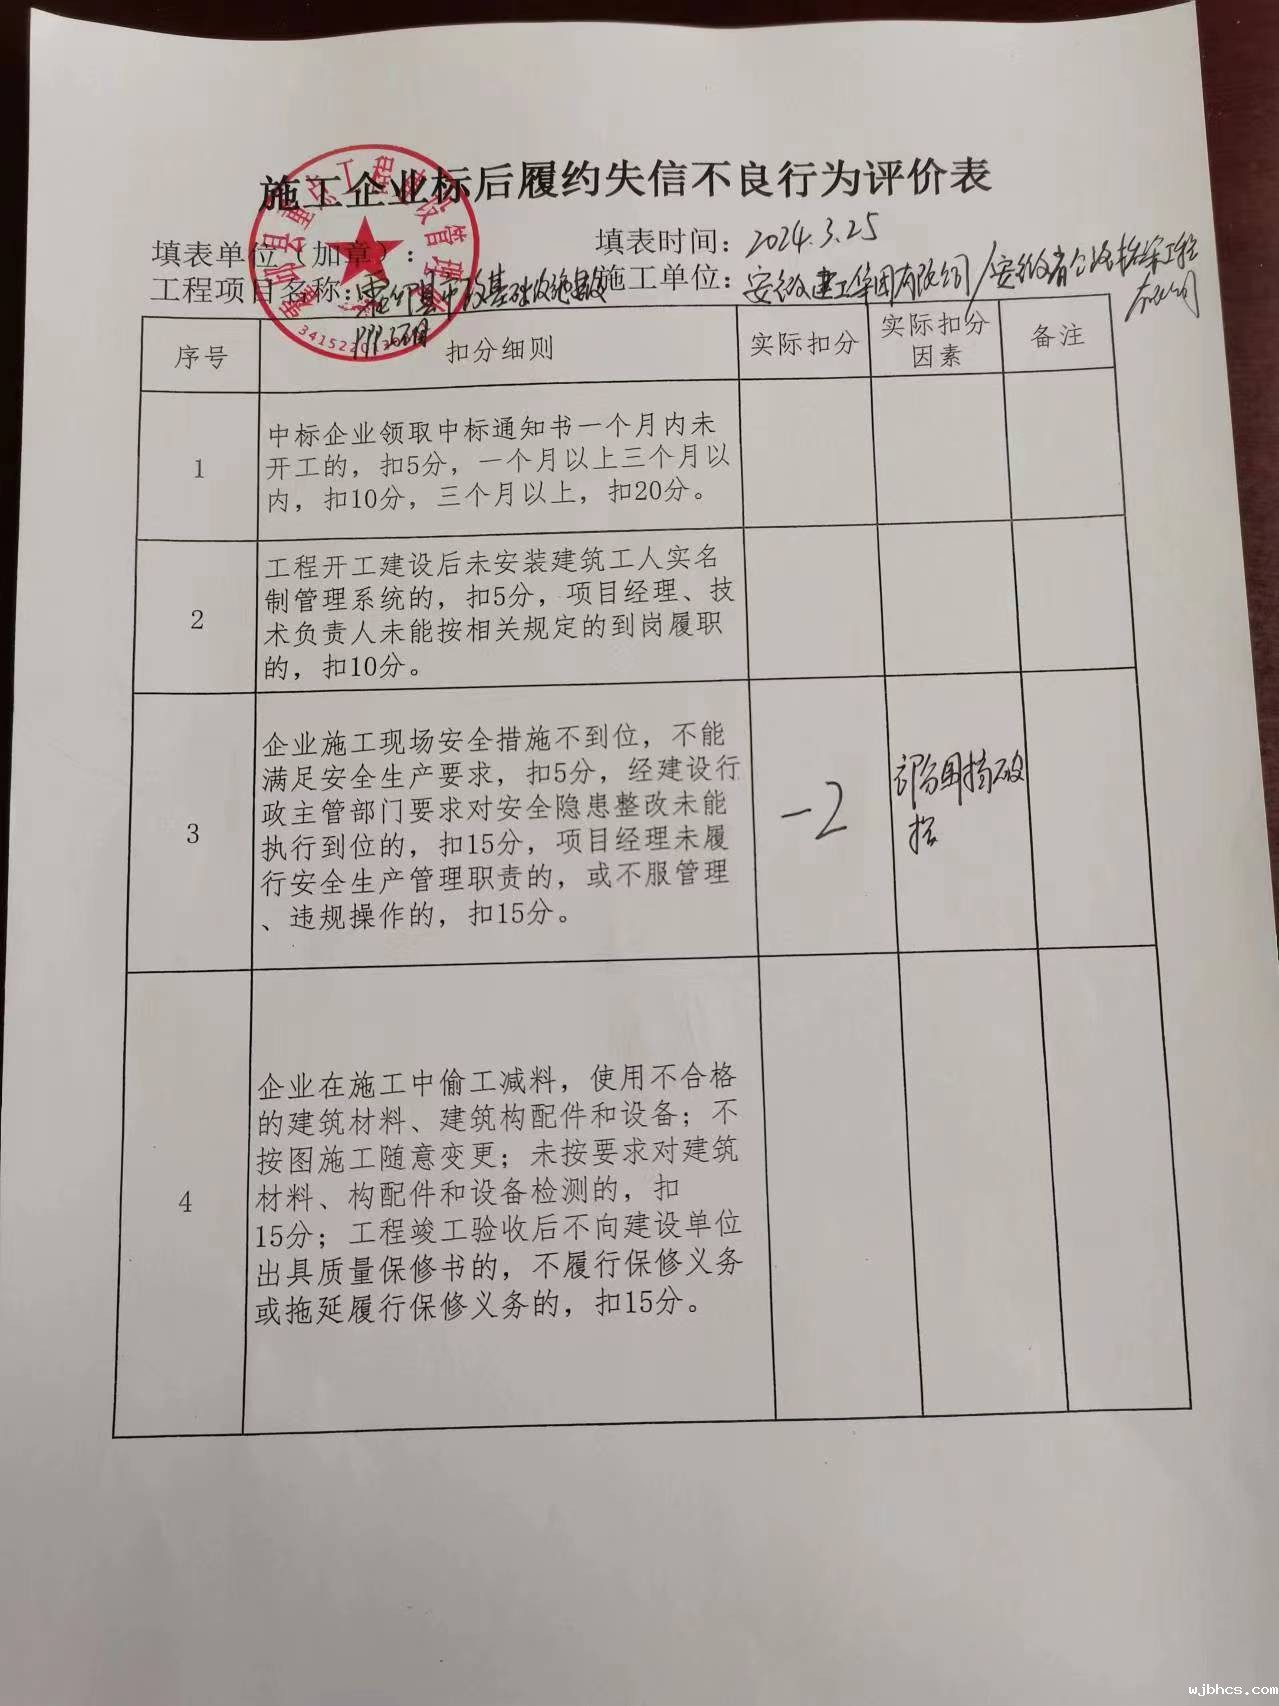 施工企业标后履约失信不良行为评价表
填表单位（加章）：
填表时间：2024.3.25
工程项目名称：霍邱县市政基础设施建设
PPP项目
施工单位：安徽建工集团有限公司/安徽省公路桥梁工程
有限公司
序号
扣分细则
实际扣分
实际扣分
因素
备注
1
中标企业领取中标通知书一个月内未
开工的，扣5分，一个月以上三个月以
内，扣10分，三个月以上，扣20分。
2
工程开工建设后未安装建筑工人实名
制管理系统的，扣5分，项目经理、技
术负责人未能按相关规定的到岗履职
的，扣10分。
3
企业施工现场安全措施不到位，不能
满足安全生产要求，扣5分，经建设行
政主管部门要求对安全隐患整改未能
执行到位的，扣15分，项目经理未履
行安全生产管理职责的，或不服管理
、违规操作的，扣15分。
-2
部分围挡破
损
4
企业在施工中偷工减料，使用不合格
的建筑材料、建筑构配件和设备；不
按图施工随意变更；未按要求对建筑
材料、构配件和设备检测的，扣
15分；工程竣工验收后不向建设单位
出具质量保修书的，不履行保修义务
或拖延履行保修义务的，扣15分。
wjbhcs.com